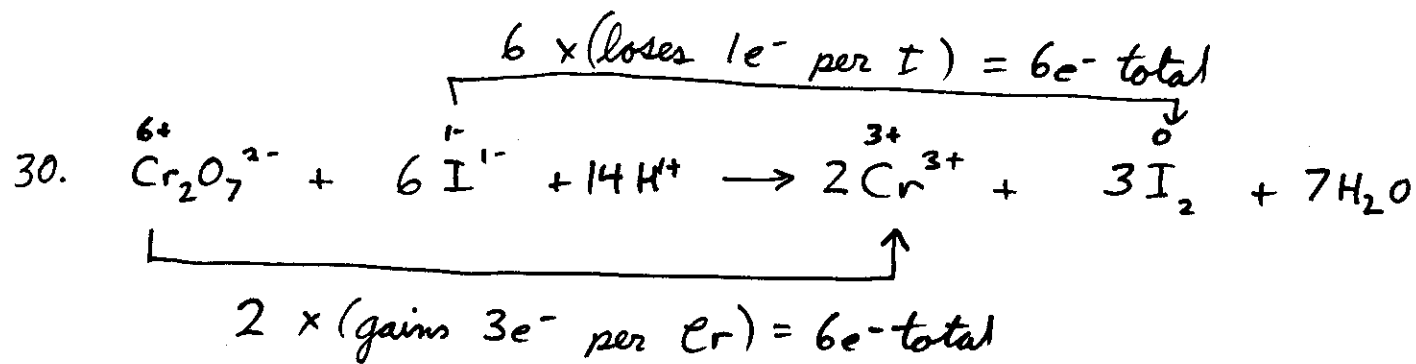 6 x (loses 1e⁻ per I) = 6e⁻ total
6+ 1- 3+ 0
30. Cr₂O₇²⁻ + 6 I¹⁻ + 14 H¹⁺ → 2 Cr³⁺ + 3 I₂ + 7H₂O
2 x (gains 3e⁻ per Cr) = 6e⁻ total